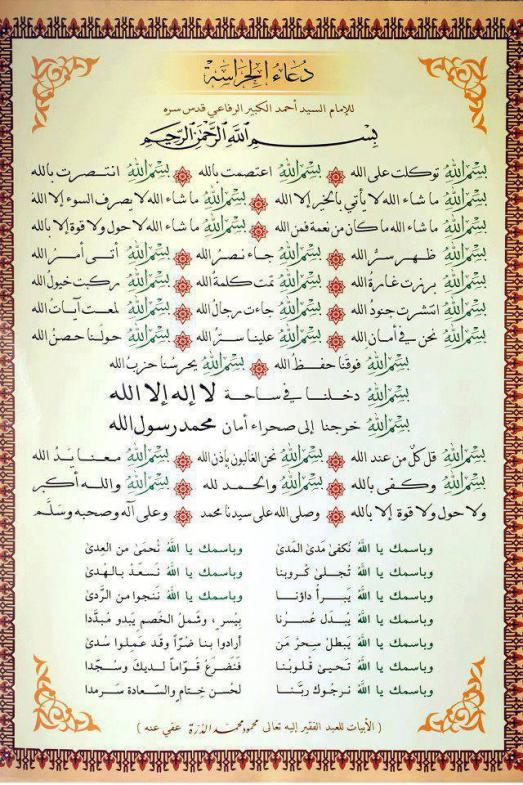 دُعَاءُ الحِرَاسَة
للإمام السيد أحمد الكبير الرفاعي قدس سره
بِسْمِ اللَّهِ الرَّحْمَنِ الرَّحِيمِ
بِسْمِ اللهِ توكلت على الله بِسْمِ اللهِ اعتصمت بالله بِسْمِ اللهِ انتصرت بالله
بِسْمِ اللهِ ما شاء الله لا يأتي بالخير إلا الله بِسْمِ اللهِ ما شاء الله لا يصرف السوء إلا الله
بِسْمِ اللهِ ما شاء الله ما كان من نعمة فمن الله بِسْمِ اللهِ ما شاء الله لا حول ولا قوة إلا بالله
بِسْمِ اللهِ ظهر سرُّ الله بِسْمِ اللهِ جاء نصرُ الله بِسْمِ اللهِ أتى أمرُ الله
بِسْمِ اللهِ برزت غارةُ الله بِسْمِ اللهِ تمّت كلمةُ الله بِسْمِ اللهِ ركبت خيولُ الله
بِسْمِ اللهِ انتشرت جنودُ الله بِسْمِ اللهِ جاءت رجالُ الله بِسْمِ اللهِ لمعت آياتُ الله
بِسْمِ اللهِ نحن في أمان الله بِسْمِ اللهِ علينا سترُ الله بِسْمِ اللهِ حولَنا حصنُ الله
بِسْمِ اللهِ فوقَنا حفظُ الله بِسْمِ اللهِ يحرسُنا حزبُ الله
بِسْمِ اللهِ دخلنا في ساحة لا إله إلا الله
بِسْمِ اللهِ خرجنا إلى صحراء أمان محمد رسول الله
بِسْمِ اللهِ قل كلٌ من عند الله بِسْمِ اللهِ نحن الغالبون بإذن الله بِسْمِ اللهِ معنا يدُ الله
بِسْمِ اللهِ وكفى بالله بِسْمِ اللهِ والحمد لله بِسْمِ اللهِ والله أكبر
ولا حول ولا قوة إلا بالله وصلى الله على سيدنا محمد وعلى آله وصحبه وسلَّم
وباسمك يا اللهُ نُكفىٰ مَدىٰ المَدىٰ وباسمك يا اللهُ نُحمَىٰ مِن العِدىٰ
وباسمك يا اللهُ تُجلىٰ كُروبنا وباسمك يا اللهُ نَسعَدُ بالهُدىٰ
وباسمك يا اللهُ يَبرأُ داؤنا وباسمك يا اللهُ نَنجوا من الرَّدىٰ
وباسمك يا اللهُ يُبدَل عُسرُنا بِيُسرٍ، وشَملُ الخَصم يَبدو مُبدَّدا
وباسمك يا اللهُ يَبطل سِحرُ مَن أرادوا بنا ضرّاً وقد عَملوا سُدىٰ
وباسمك يا اللهُ تَحيىٰ قلوبُنا فنَضرَعُ قُوّاماً لديكَ وسُجّدا
وباسمك يا اللهُ نرجُوك ربَّنا لحُسن خِتامٍ والسَّعادة سَرمدا
( الأبيات للعبد الفقير إليه تعالى محمود محمد الدُّرَة عفي عنه )